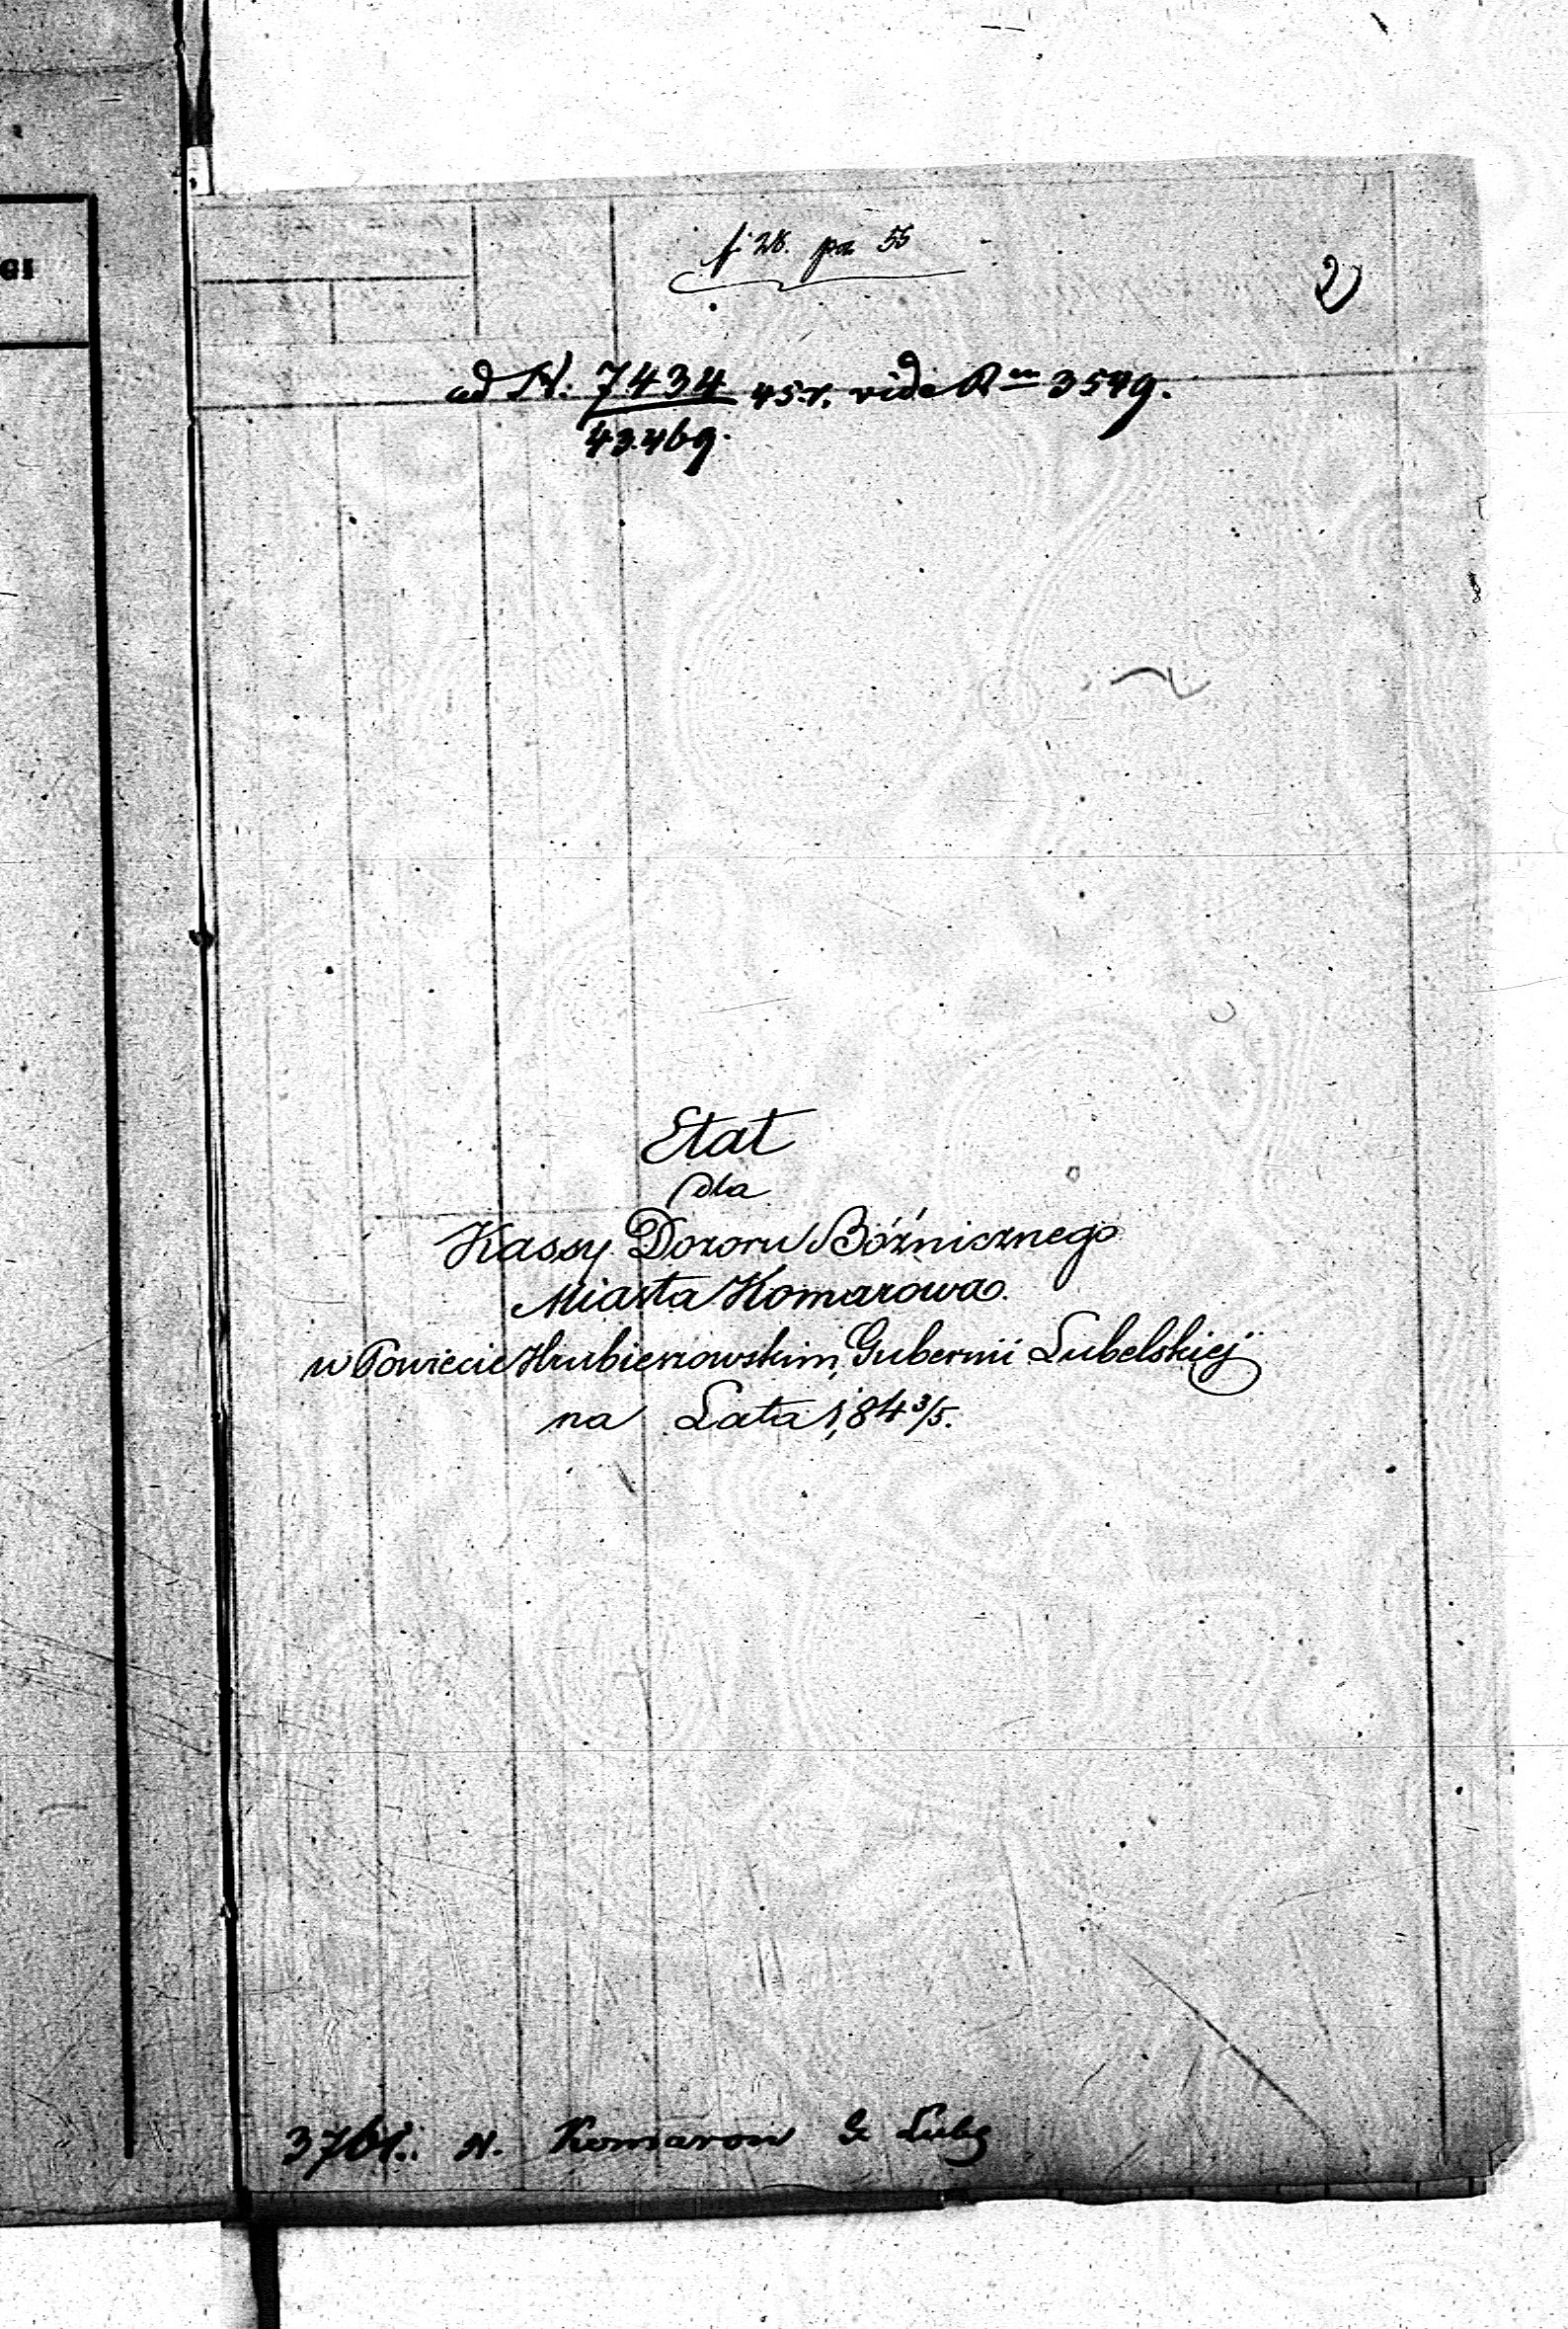 GI
f. 28. pa 55
2
ad N. 7434 45 r. vide R m 3549.
43.469.
Etat
dla
Kassy Dozoru Bóżnicznego
Miasta Komarowa.
w Powiecie Hrubieszowskim, Gubernii Lubelskiej
na Lata 184 3/5.
3761. N. Komarow G Lubg